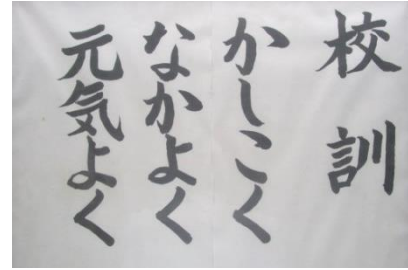 校訓
かしこく
なかよく
元気よく